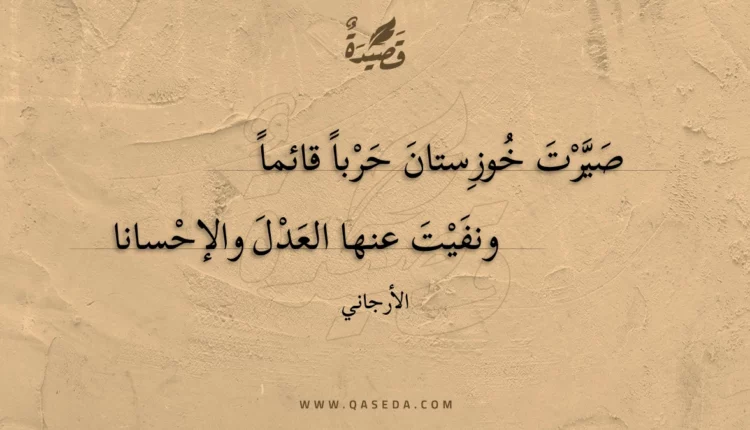 قَصِيْدَةٌ
صَيَّرْتَ خُوزِستانَ حَرْباً قائماً
ونفَيْتَ عنها العَدْلَ والإحْسانا
الأرجاني
WWW.QASEDA.COM